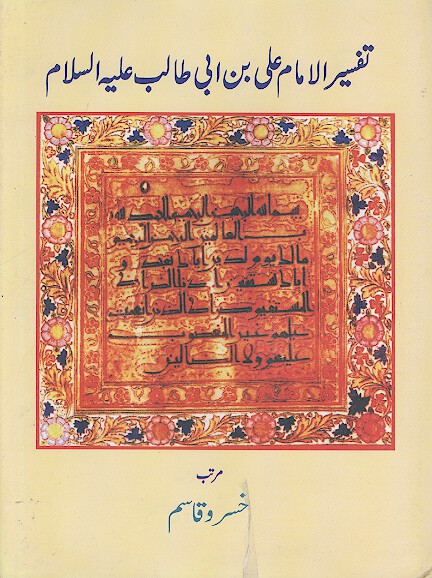 تفسیر الامام علی بن ابی طالب علیہ السلام
بسم الله الرحمن الرحيم الحمد لله
رب العالمين الرحمن الرحيم
مالك يوم الدين اياك نعبد و
اياك نستعين اهدنا الصراط
المستقيم صراط الذين انعمت
عليهم غير المغضوب
عليهم ولا الضالين
مرتب
خسرو قاسم